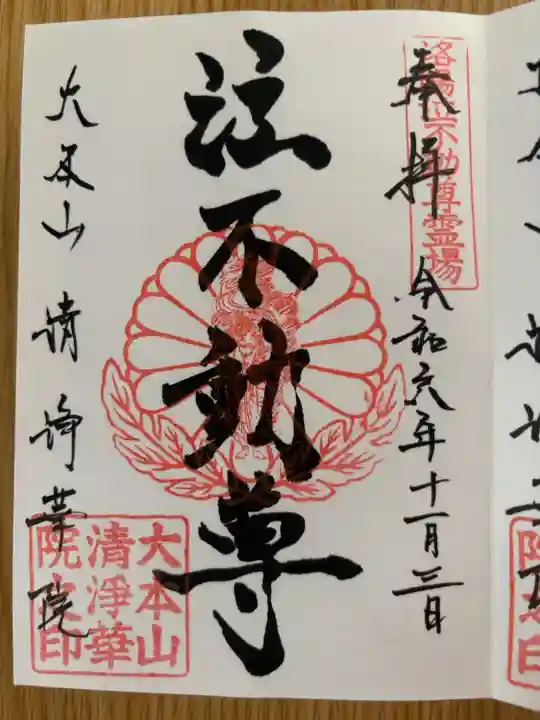 奉拝 令和六年十一月三日
洛陽泣不動尊霊場
泣不動尊
大本山 清浄華院
大本山
清浄華
院之印